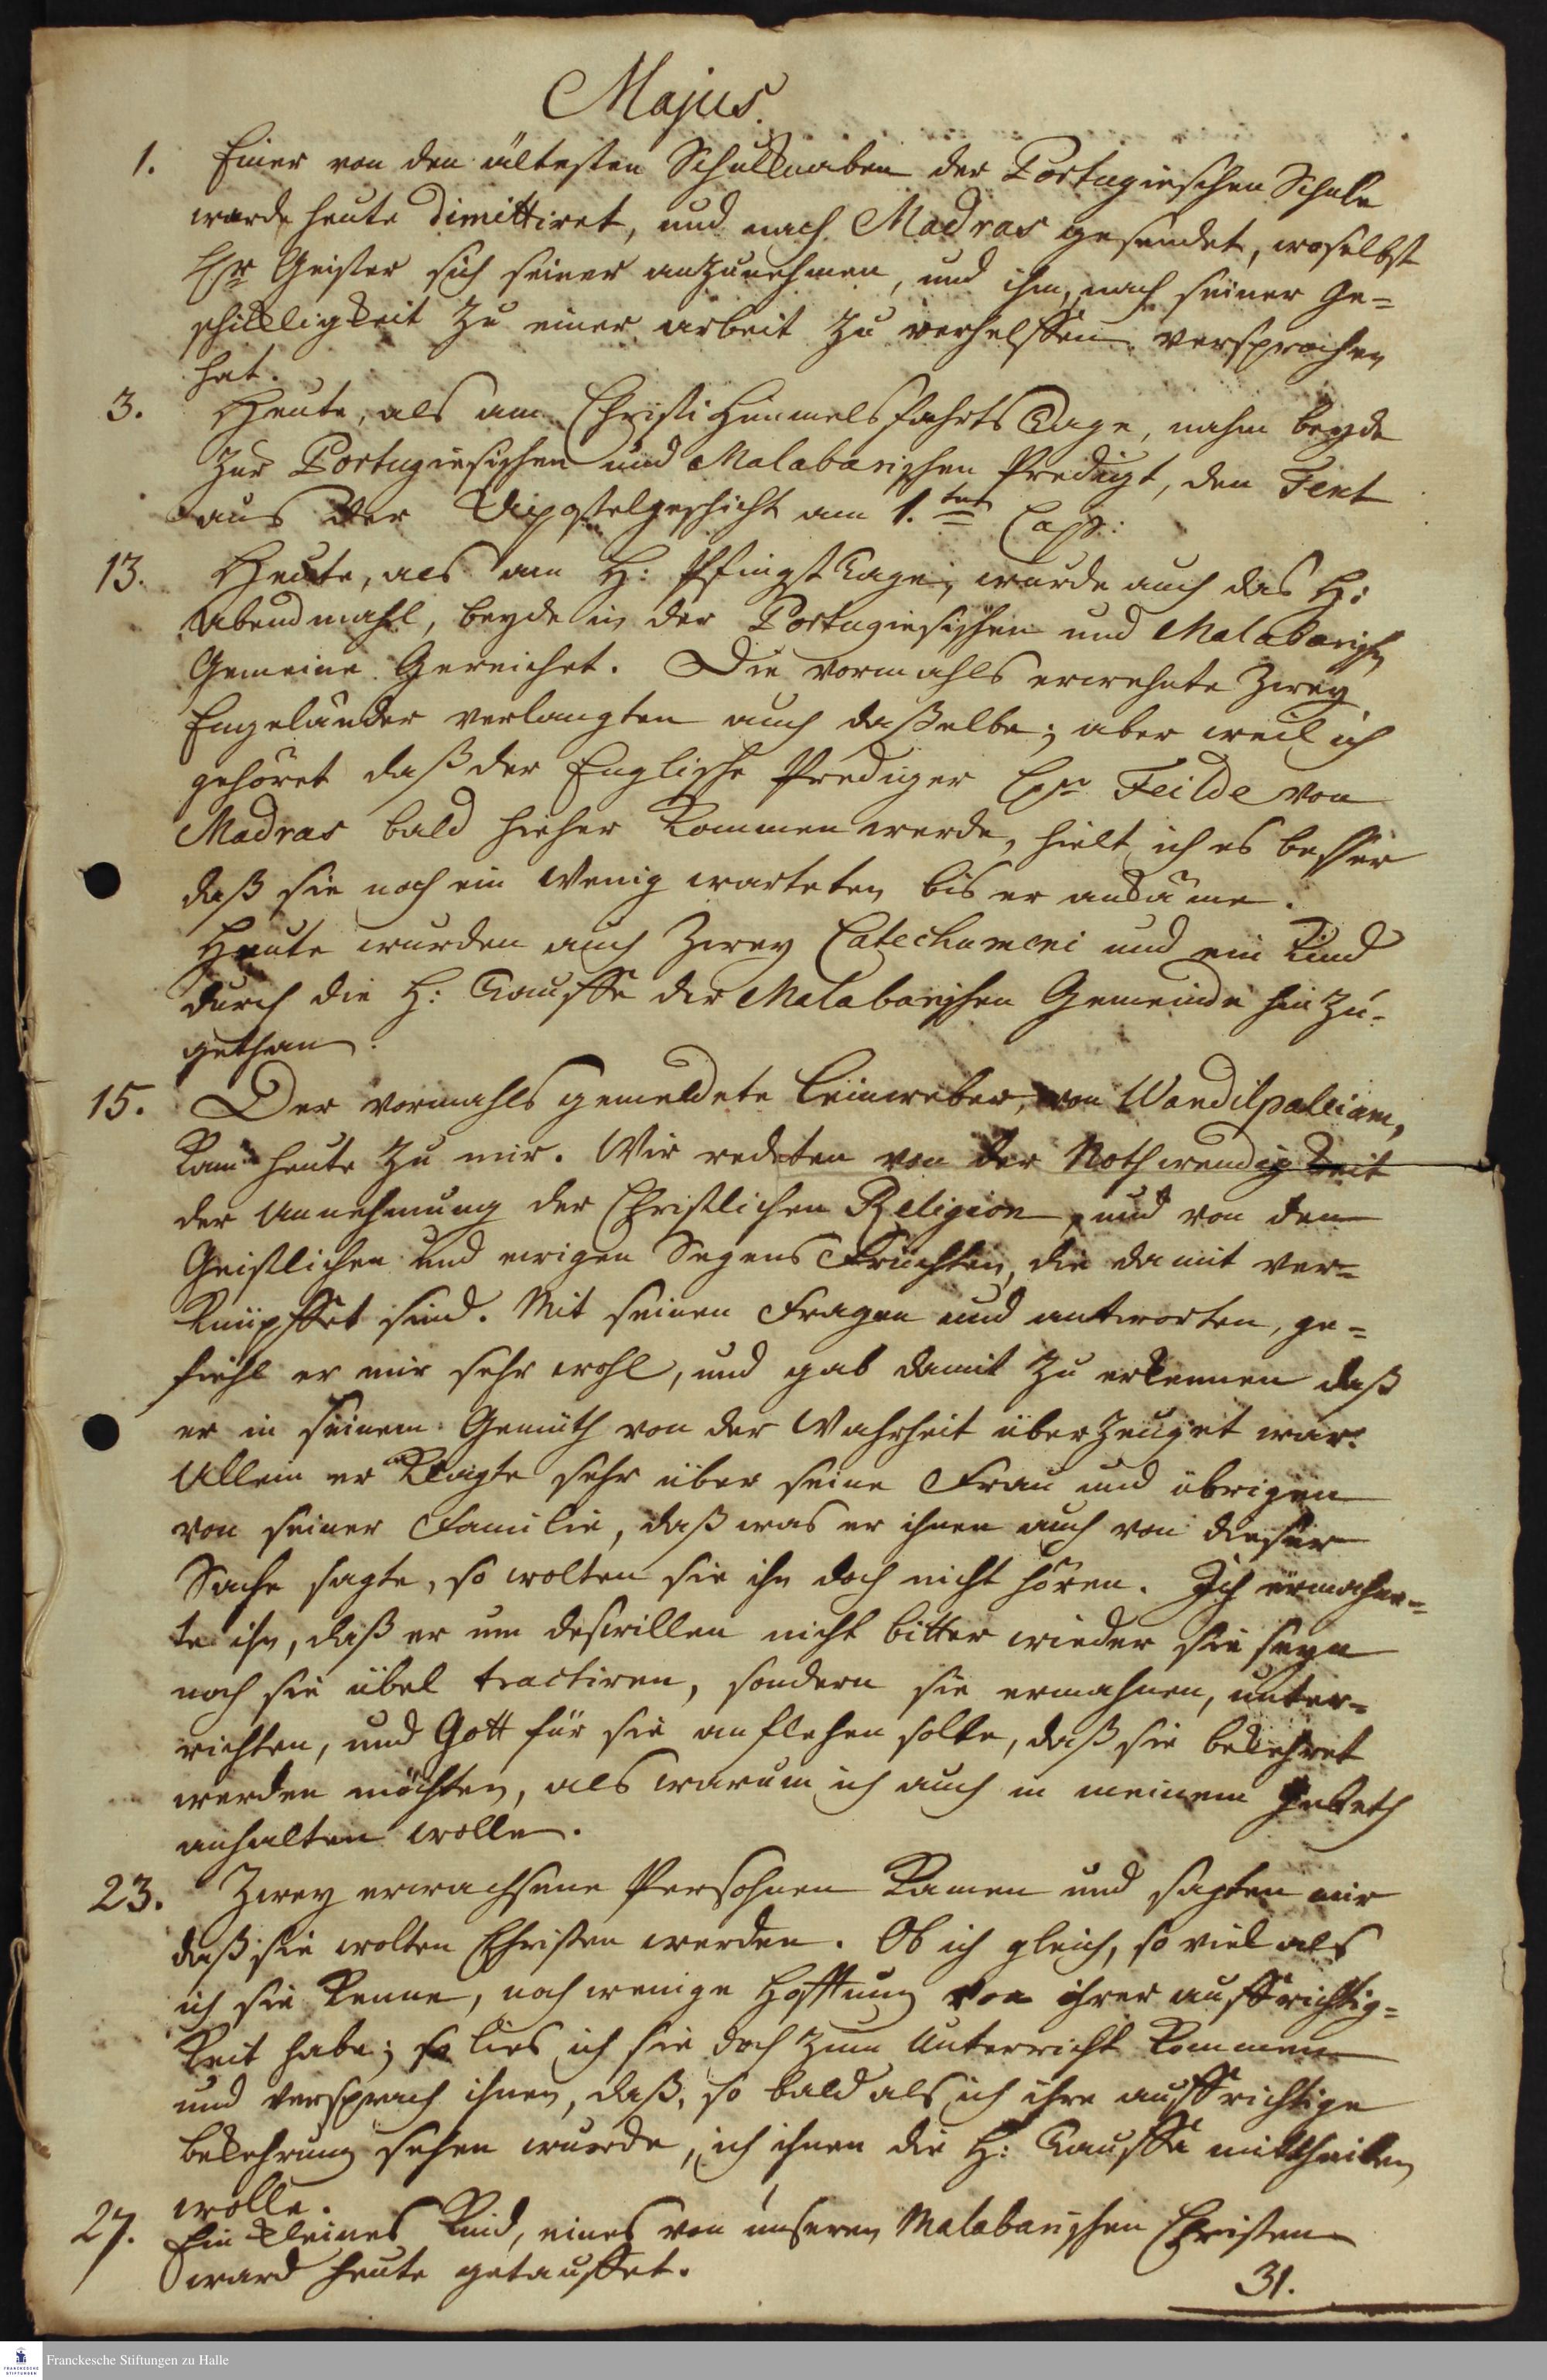 Majus.
1. Einer von den ältesten Schulknaben der Portugieschen Schule
wurde heute dimittiret, und nach Madras gesendet, woselbst
Hr Geister sich seiner anzunehmen, und ihm, nach seiner Ge=
schickligkeit zu einer arbeit zu verhelffen versprochen
hat.
3. Heute, als am Christi Himmelsfahrts Tage, nahm beyde
zur Portugiesischen und Malabarischen Predigt, den Text
aus der Apostelgeschicht am 1.ten Cap:
13. Heute, als am H: Pfingst Tage, wurde auch das H:
Abendmahl, beyde in der Portugiesischen und Malabarischen
Gemeine Gereichet. Die vormahls erwehnte zwey
Engeländer verlangten auch daßelbe; aber weil ich
gehöret daß der Englische Prediger Hr Feilde von
Madras bald hieher kommen werde, hielt ich es besser
daß sie noch ein wenig warteten bis er ankäme.
Heute wurden auch zwey Catechumeni und ein Kind
durch die H: Tauffe der Malabarischen Gemeinde hinzu-
gethan.
15. Der vormahls gemeldete Leinweber, von Wandilpaleiam,
kam heute zu mir. Wir redeten von der Nothwendigkeit
der Annehmung der Christlichen Religion, und von den
Geistlichen und ewigen Segens Früchten, die damit ver=
knüpffet sind. Mit seinen Fragen und antworten, ge=
fiehl er mir sehr wohl, und gab damit zu erkennen daß
er in seinem Gemüth von der Wahrheit überzeuget war.
Allein er klagte sehr über seine Frau und übrigen
von seiner Familie, daß was er ihnen auch von dieser
Sache sagte, so wolten sie ihn doch nicht hören. Ich ermahn=
te ihn, daß er um deswillen nicht bitter wieder sie seyn
noch sie übel tractiren, sondern sie ermahnen, unter=
richten, und Gott für sie anflehen solte, daß sie bekehret
werden möchten, als warum ich auch in meinem Gebeth
anhalten wolle.
23. Zwey erwachsene Persohnen kamen und sagten mir
daß sie wolten Christen werden. Ob ich gleich, so viel als
ich sie kenne, noch wenige Hoffnung von ihrer auffrichtig=
keit habe; so lies ich sie doch zum Unterricht kommen
und versprach ihnen, daß, so bald als ich ihre auffrichtige
bekehrung sehen wurde, ich ihnen die H: Tauffe mittheilen
wolle.
27. Ein kleines Kind, eines von unseren Malabarischen Christen
ward heute getauffet.
31.
Franckesche Stiftungen zu Halle
FRANCKESCHE STIFTUNGEN